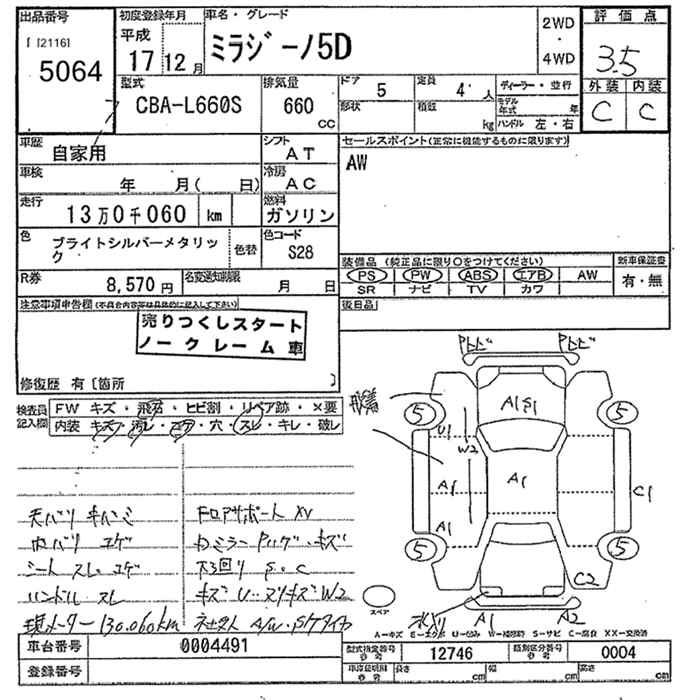 出品番号
[ [2116]
5064
初度登録年月
平成
17 12 月
車名・グレード
ミラジーノ5D
2WD
・
4WD
評価点
3.5
外装 内装
C C
型式
CBA-L660S
排気量
660
CC
ドア 5
形状
定員 4 人
積載 kg
ディーラー・並行
モデル年式 年
ハンドル 左・右
車歴 自家用
シフト AT
車検 年 月( 日)
冷房 AC
走行 13万0千060 km
燃料 ガソリン
色 ブライトシルバーメタリック
色替
色コード S28
R券 8,570 円
名変通知期限 月 日
セールスポイント(正常に機能するものに限ります)
AW
装備品 (純正品に限り○をつけてください)
PS PW ABS エアB AW
SR ナビ TV カワ
新車保証書
有・無
後日品
注意事項申告欄(不具合内容等は具体的に記入して下さい)
売りつくしスタート
ノークレーム車
修復歴 有〔箇所 〕
検査員記入欄
FW キズ・飛石・ヒビ割・リペア跡・×要
内装 キズ・汚レ・コゲ・穴・スレ・キレ・破レ
天バリ キバミ
内バリ コゲ
シート スレ コゲ
ハンドル スレ
現メーター 130.060km
フロアサポート XV
カミラー キズ
下回り S.C
キズ U W2
A/W
車台番号 0004491
登録番号
アトビ アトビ
A1 S1
U1
W2
A1
A1
A1
5
5
5
5
C1
C2
A1 A2
スペア
A−キズ E−エクボ U−凹み W−補修跡 S−サビ C−腐食 XX−交換済
型式指定番号 12746
類別区分番号 0004
車庫証明用
長さ cm
幅 cm
高さ cm